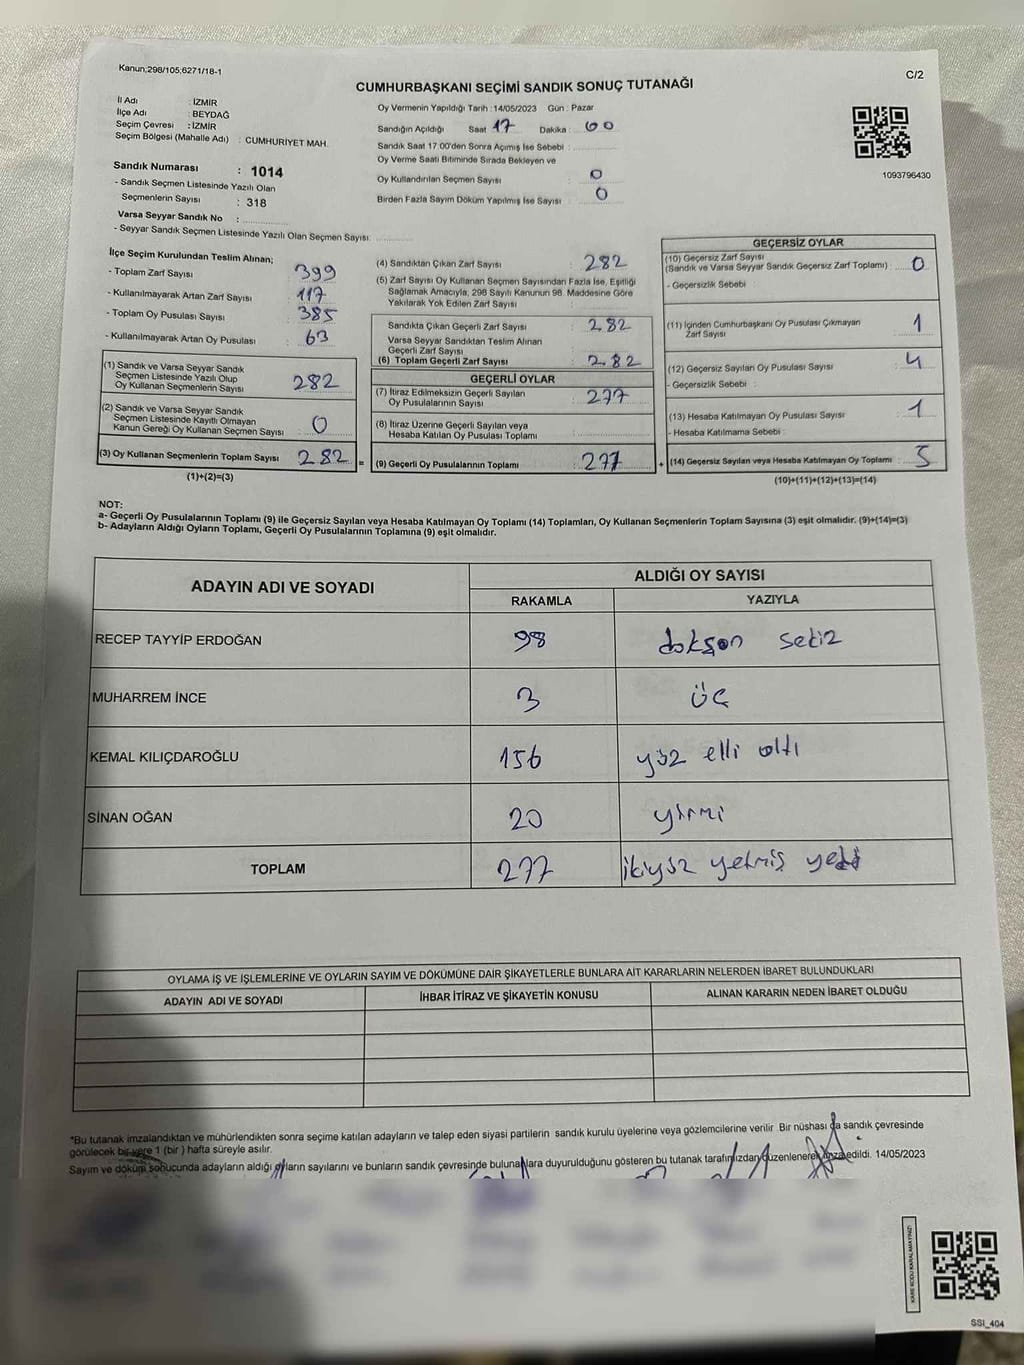 Kanun;298/105;6271/18-1
C/2
CUMHURBAŞKANI SEÇİMİ SANDIK SONUÇ TUTANAĞI
İl Adı : İZMİR
İlçe Adı : BEYDAĞ
Seçim Çevresi : İZMİR
Seçim Bölgesi (Mahalle Adı) : CUMHURİYET MAH.
Sandık Numarası : 1014
- Sandık Seçmen Listesinde Yazılı Olan
Seçmenlerin Sayısı : 318
Varsa Seyyar Sandık No :
- Seyyar Sandık Seçmen Listesinde Yazılı Olan Seçmen Sayısı:
Oy Vermenin Yapıldığı Tarih :14/05/2023 Gün : Pazar
Sandığın Açıldığı Saat 17 Dakika : 00
Sandık Saat 17:00'den Sonra Açımış İse Sebebi :
Oy Verme Saati Bitiminde Sırada Bekleyen ve
Oy Kullandırılan Seçmen Sayısı : 0
Birden Fazla Sayım Döküm Yapılmış İse Sayısı : 0
1093796430
İlçe Seçim Kurulundan Teslim Alınan;
- Toplam Zarf Sayısı : 399
- Kullanılmayarak Artan Zarf Sayısı : 117
- Toplam Oy Pusulası Sayısı : 385
- Kullanılmayarak Artan Oy Pusulası : 63
(1) Sandık ve Varsa Seyyar Sandık
Seçmen Listesinde Yazılı Olup
Oy Kullanan Seçmenlerin Sayısı : 282
(2) Sandık ve Varsa Seyyar Sandık
Seçmen Listesinde Kayıtlı Olmayan
Kanun Gereği Oy Kullanan Seçmen Sayısı : 0
(3) Oy Kullanan Seçmenlerin Toplam Sayısı : 282
(1)+(2)=(3)
(4) Sandıktan Çıkan Zarf Sayısı : 282
(5) Zarf Sayısı Oy Kullanan Seçmen Sayısından Fazla İse, Eşitliği
Sağlamak Amacıyla, 298 Sayılı Kanunun 98. Maddesine Göre
Yakılarak Yok Edilen Zarf Sayısı :
Sandıkta Çıkan Geçerli Zarf Sayısı : 282
Varsa Seyyar Sandıktan Teslim Alınan
Geçerli Zarf Sayısı :
(6) Toplam Geçerli Zarf Sayısı : 282
GEÇERLİ OYLAR
(7) İtiraz Edilmeksizin Geçerli Sayılan
Oy Pusulalarının Sayısı : 277
(8) İtiraz Üzerine Geçerli Sayılan veya
Hesaba Katılan Oy Pusulası Toplamı :
= (9) Geçerli Oy Pusulalarının Toplamı : 277
GEÇERSİZ OYLAR
(10) Geçersiz Zarf Sayısı
(Sandık ve Varsa Seyyar Sandık Geçersiz Zarf Toplamı) : 0
- Geçersizlik Sebebi :
(11) İçinden Cumhurbaşkanı Oy Pusulası Çıkmayan
Zarf Sayısı : 1
(12) Geçersiz Sayılan Oy Pusulası Sayısı : 4
- Geçersizlik Sebebi :
(13) Hesaba Katılmayan Oy Pusulası Sayısı : 1
- Hesaba Katılmama Sebebi :
+ (14) Geçersiz Sayılan veya Hesaba Katılmayan Oy Toplamı : 5
(10)+(11)+(12)+(13)=(14)
NOT:
a- Geçerli Oy Pusulalarının Toplamı (9) ile Geçersiz Sayılan veya Hesaba Katılmayan Oy Toplamı (14) Toplamları, Oy Kullanan Seçmenlerin Toplam Sayısına (3) eşit olmalıdır. (9)+(14)=(3)
b- Adayların Aldığı Oyların Toplamı, Geçerli Oy Pusulalarının Toplamına (9) eşit olmalıdır.
ADAYIN ADI VE SOYADI ALDIĞI OY SAYISI
RAKAMLA YAZIYLA
RECEP TAYYİP ERDOĞAN 98 doksan sekiz
MUHARREM İNCE 3 üç
KEMAL KILIÇDAROĞLU 156 yüz elli altı
SİNAN OĞAN 20 yirmi
TOPLAM 277 ikiyüz yetmiş yedi
OYLAMA İŞ VE İŞLEMLERİNE VE OYLARIN SAYIM VE DÖKÜMÜNE DAİR ŞİKAYETLERLE BUNLARA AİT KARARLARIN NELERDEN İBARET BULUNDUKLARI
ADAYIN ADI VE SOYADI İHBAR İTİRAZ VE ŞİKAYETİN KONUSU ALINAN KARARIN NEDEN İBARET OLDUĞU
*Bu tutanak imzalandıktan ve mühürlendikten sonra seçime katılan adayların ve talep eden siyasi partilerin sandık kurulu üyelerine veya gözlemcilerine verilir. Bir nüshası da sandık çevresinde
görülecek bir yere 1 (bir ) hafta süreyle asılır.
Sayım ve döküm sonucunda adayların aldığı oyların sayılarını ve bunların sandık çevresinde bulunanlara duyurulduğunu gösteren bu tutanak tarafımızdan düzenlenerek imza edildi. 14/05/2023
KARE KODU KARALAMAYINIZ!
SSI_404